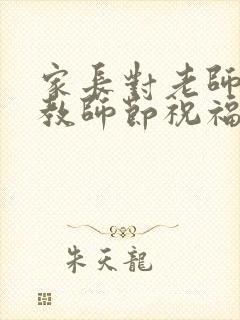 家長對老師
教師節祝福
朱天龍